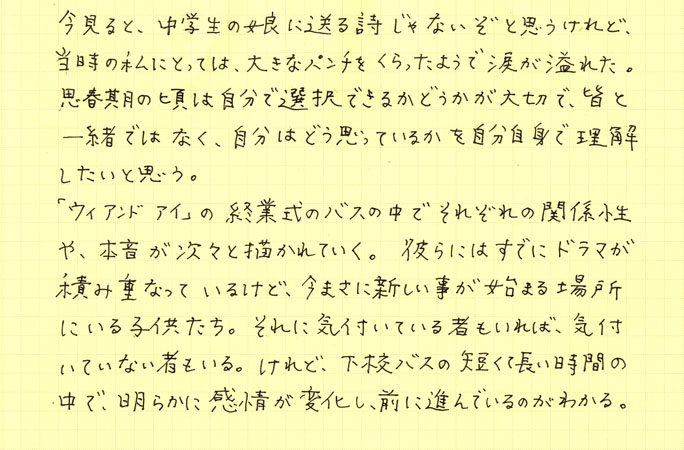 今見ると、中学生の娘に送る詩じゃないぞと思うけれど、
当時の私にとっては、大きなパンチをくらったようで涙が溢れた。
思春期の頃は自分で選択できるかどうかが大切で、皆と
一緒ではなく、自分はどう思っているかを自分自身で理解
したいと思う。
「ウィアンド アイ」の終業式のバスの中でそれぞれの関係性
や、本音が次々と描かれていく。彼らにはすでにドラマが
積み重なっているけど、今まさに新しい事が始まる場所
にいる子供たち。それに気付いている者もいれば、気付
いていない者もいる。けれど、下校バスの短くて長い時間の
中で、明らかに感情が変化し、前に進んでいるのがわかる。